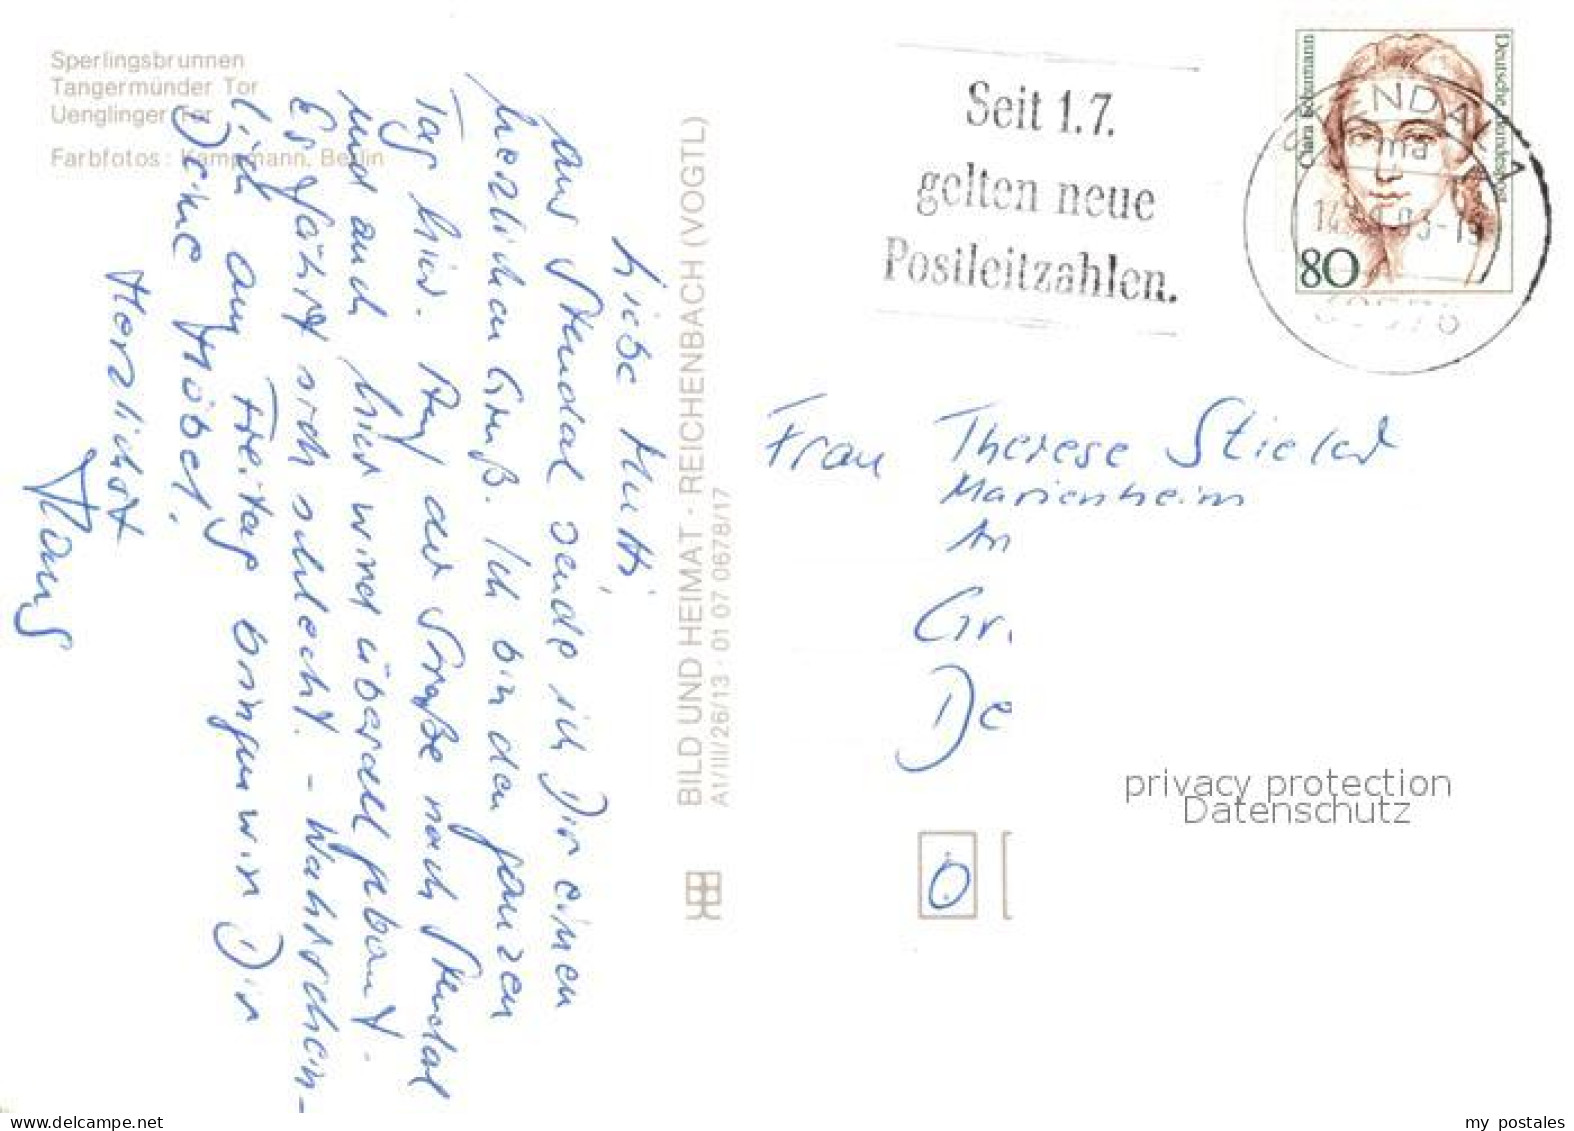 Sperlingsbrunnen
Tangermünder Tor
Uenglinger Tor
Farbfotos: Kampmann, Berlin
Liebe Mutti,
aus Stendal sende ich Dir einen
herzlichen Gruß. Ich bin den ganzen
Tag hier. Auf der Straße nach Stendal
und auch hier wird überall gebaut.
Es fährt sich schlecht. - Wahrschein-
lich am Freitag bringen wir Dir
Deine Möbel.
Herzlichst
Hans
BILD UND HEIMAT · REICHENBACH (VOGTL)
A1/III/26/13 · 01 07 0678/17
Seit 1.7.
gelten neue
Postleitzahlen.
Clara Schumann
Deutsche Bundespost
80
STENDAL 1
ma
39576
Frau Therese Stieler
Marienheim
An
Gr.
De
privacy protection
Datenschutz
www.delcampe.net
my_postales